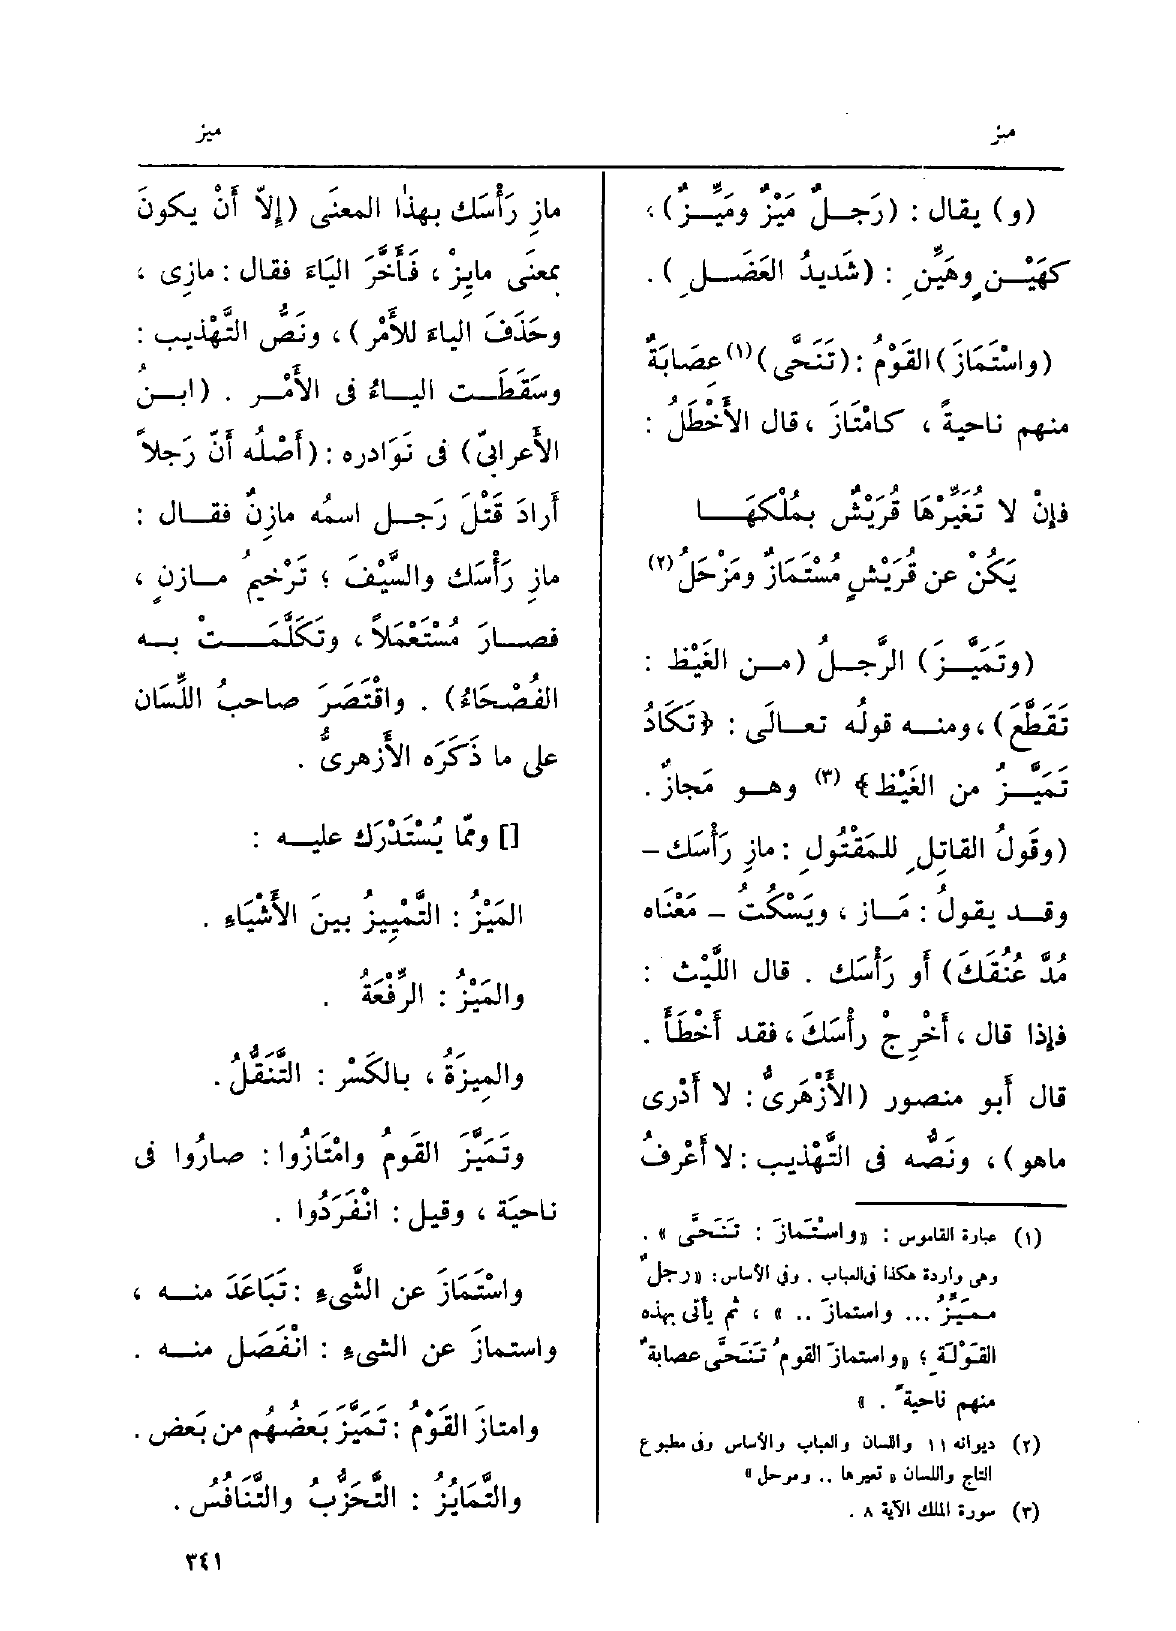 ميز
ميز
(و) يقال : (رَجلٌ مَيْزٌ ومَيِّزٌ) ،
كهَيْنٍ وهَيِّنٍ : (شَديدُ العَضَلِ) .
(واسْتَمازَ) القَوْمُ : (تَنَحَّى) (١) عِصَابَةٌ
منهم ناحيةً ، كامْتازَ ، قال الأَخْطَلُ :
فإِنْ لا تُغَيِّرْهَا قُرَيْشٌ بمُلْكهَا
يَكُنْ عن قُرَيْشٍ مُسْتَمازٌ ومَزْحَلُ (٢)
(وتَمَيَّزَ) الرَّجلُ (من الغَيْظ :
تَقَطَّعَ) ، ومنه قولُه تعالَى : ﴿تَكَادُ
تَمَيَّزُ من الغَيْظ﴾ (٣) وهو مَجازٌ .
(وقَولُ القاتِلِ للمَقْتُولِ : مازِ رَأْسَك –
وقد يقولُ : مَاز ، ويَسْكُتُ – مَعْنَاه
مُدَّ عُنُقَكَ) أَو رَأْسَك . قال اللَّيْث :
فإِذا قال ، أَخْرِجْ رأْسَكَ ، فقد أَخْطَأَ .
قال أَبو منصور (الأَزْهَرِىُّ : لا أَدْرِى
ماهو) ، ونَصُّه فى التَّهْذيب : لا أَعْرفُ
(١) عبارة القاموس : «واسْتَمازَ : تَنَحَّى» .
وهى واردة هكذا فى العباب . وفى الأساس : «رجلٌ
مميَّزٌ ... واستمازَ .. » ، ثم يأتى بهذه
القَوْلةِ ؛ «واستمازَ القومُ تَنَحَّى عصابةٌ
منهم ناحيةً . »
(٢) ديوانه ١١ واللسان والعباب والأساس وفى مطبوع
التاج واللسان «تعيرها .. ومرحل»
(٣) سورة الملك الآية ٨ .
مازِ رَأْسَك بهذا المعنَى (إِلاّ أَنْ يكونَ
بمعنَى مايِزْ ، فَأَخَّرَ اليَاءَ فقال : مازِى ،
وحَذَفَ الياءَ للأَمْر) ، ونَصُّ التَّهْذيب :
وسَقَطَت الياءُ فى الأَمْر . (ابنُ
الأَعرابىّ) فى نَوَادره : (أَصْلُه أَنّ رَجلاً
أَرادَ قَتْلَ رَجل اسمُه مازِنٌ فقال :
مازِ رَأْسَك والسَّيْفَ ؛ تَرْخيمُ مازنٍ ،
فصارَ مُسْتَعْمَلاً ، وتَكَلَّمَتْ به
الفُصْحَاءُ) . واقْتَصَرَ صاحبُ اللِّسَان
على ما ذَكَرَه الأَزهرىُّ .
[] وممّا يُسْتَدْرَك عليه :
المَيْزُ : التَّمْيِيزُ بينَ الأَشْيَاءِ .
والمَيْزُ : الرِّفْعَةُ .
والمِيزَةُ ، بالكَسْر : التَّنَقُّلُ .
وتَمَيَّزَ القومُ وامْتازُوا : صارُوا فى
ناحيَة ، وقيل : انْفَرَدُوا .
واسْتَمازَ عن الشَّىءِ : تَبَاعَدَ منه ،
واستمازَ عن الشىءِ : انْفَصَل منه .
وامتازَ القَوْمُ : تَميَّزَ بَعضُهُم من بَعَض .
والتَّمايُزُ : التَّحَزُّبُ والتَّنافُسُ .
٣٤١